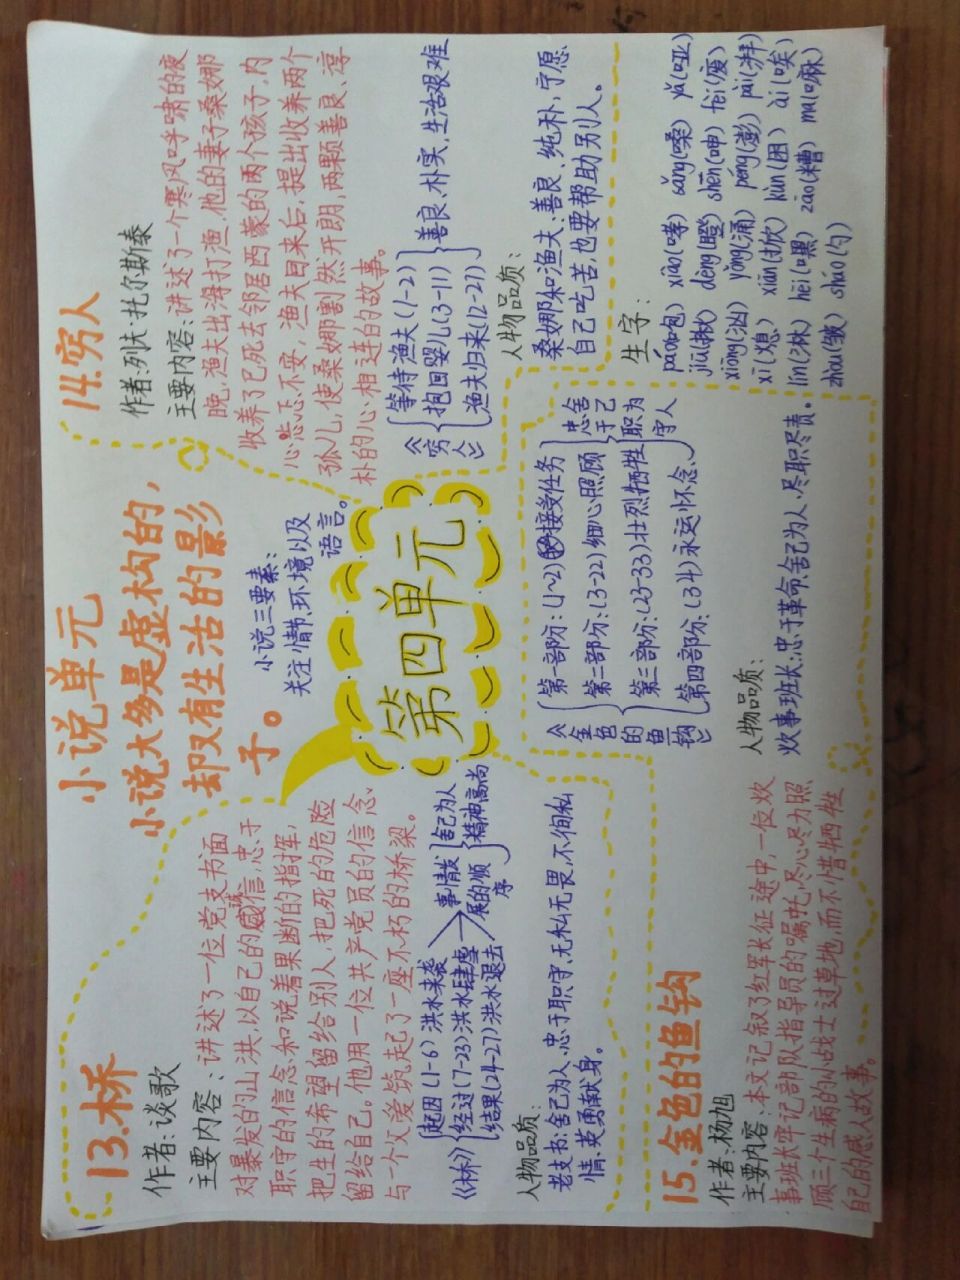 小说单元
小说大多是虚构的，
却又有生活的影
子。
小说三要素：
关注情节、环境以及
语言。
第四单元
13.桥
作者：谈歌
主要内容：讲述了一位党支书面
对暴发的山洪，以自己的威信，忠于
职守的信念和说着果断的指挥，
把生的希望留给别人，把死的危险
留给自己。他用一位共产党员的信念
与一个父爱筑起了一座不朽的桥梁。
《桥》
起因(1-6)洪水来袭
经过(7-23)洪水肆虐
结果(24-27)洪水退去
事情发
展的顺
序
舍己为人
精神高尚
人物品质：
老支书：舍己为人、忠于职守、无私无畏、不徇私
情、英勇献身。
14.穷人
作者：列夫·托尔斯泰
主要内容：讲述了一个寒风呼啸的夜
晚，渔夫出海打渔，他的妻子桑娜
收养了已死去邻居西蒙的两个孩子，内
心忐忑不安，渔夫回来后，提出收养两个
孤儿，使桑娜豁然开朗，两颗善良、淳
朴的心相连的故事。
《穷人》
等待渔夫(1-2)
抱回婴儿(3-11)
渔夫归来(12-27)
善良、朴实、生活艰难
人物品质：
桑娜和渔夫：善良、纯朴，宁愿
自己吃苦，也要帮助别人。
15.金色的鱼钩
作者：杨旭
主要内容：本文记叙了红军长征途中，一位炊
事班长牢记部队指导员的嘱咐，尽心尽力照
顾三个生病的小战士过草地，而不惜牺牲
自己的感人故事。
《金色的鱼钩》
第一部分：(1~2)接受任务
第二部分：(3-22)细心照顾
第三部分：(23-33)壮烈牺牲
第四部分：(34)永远怀念
忠舍
于己
职为
守人
人物品质：
炊事班长：忠于革命、舍己为人、尽职尽责。
生字：
páo(咆) xiào(哮) sǎng(嗓) yǎ(哑)
jiū(揪) dèng(瞪) shēn(呻) fèi(废)
xiōng(汹) yǒng(涌) péng(澎) pài(湃)
xī(熄) xiān(掀) kùn(困) ài(唉)
lín(淋) hēi(嘿) zāo(糟) ma(嘛)
zhòu(皱) sháo(勺)